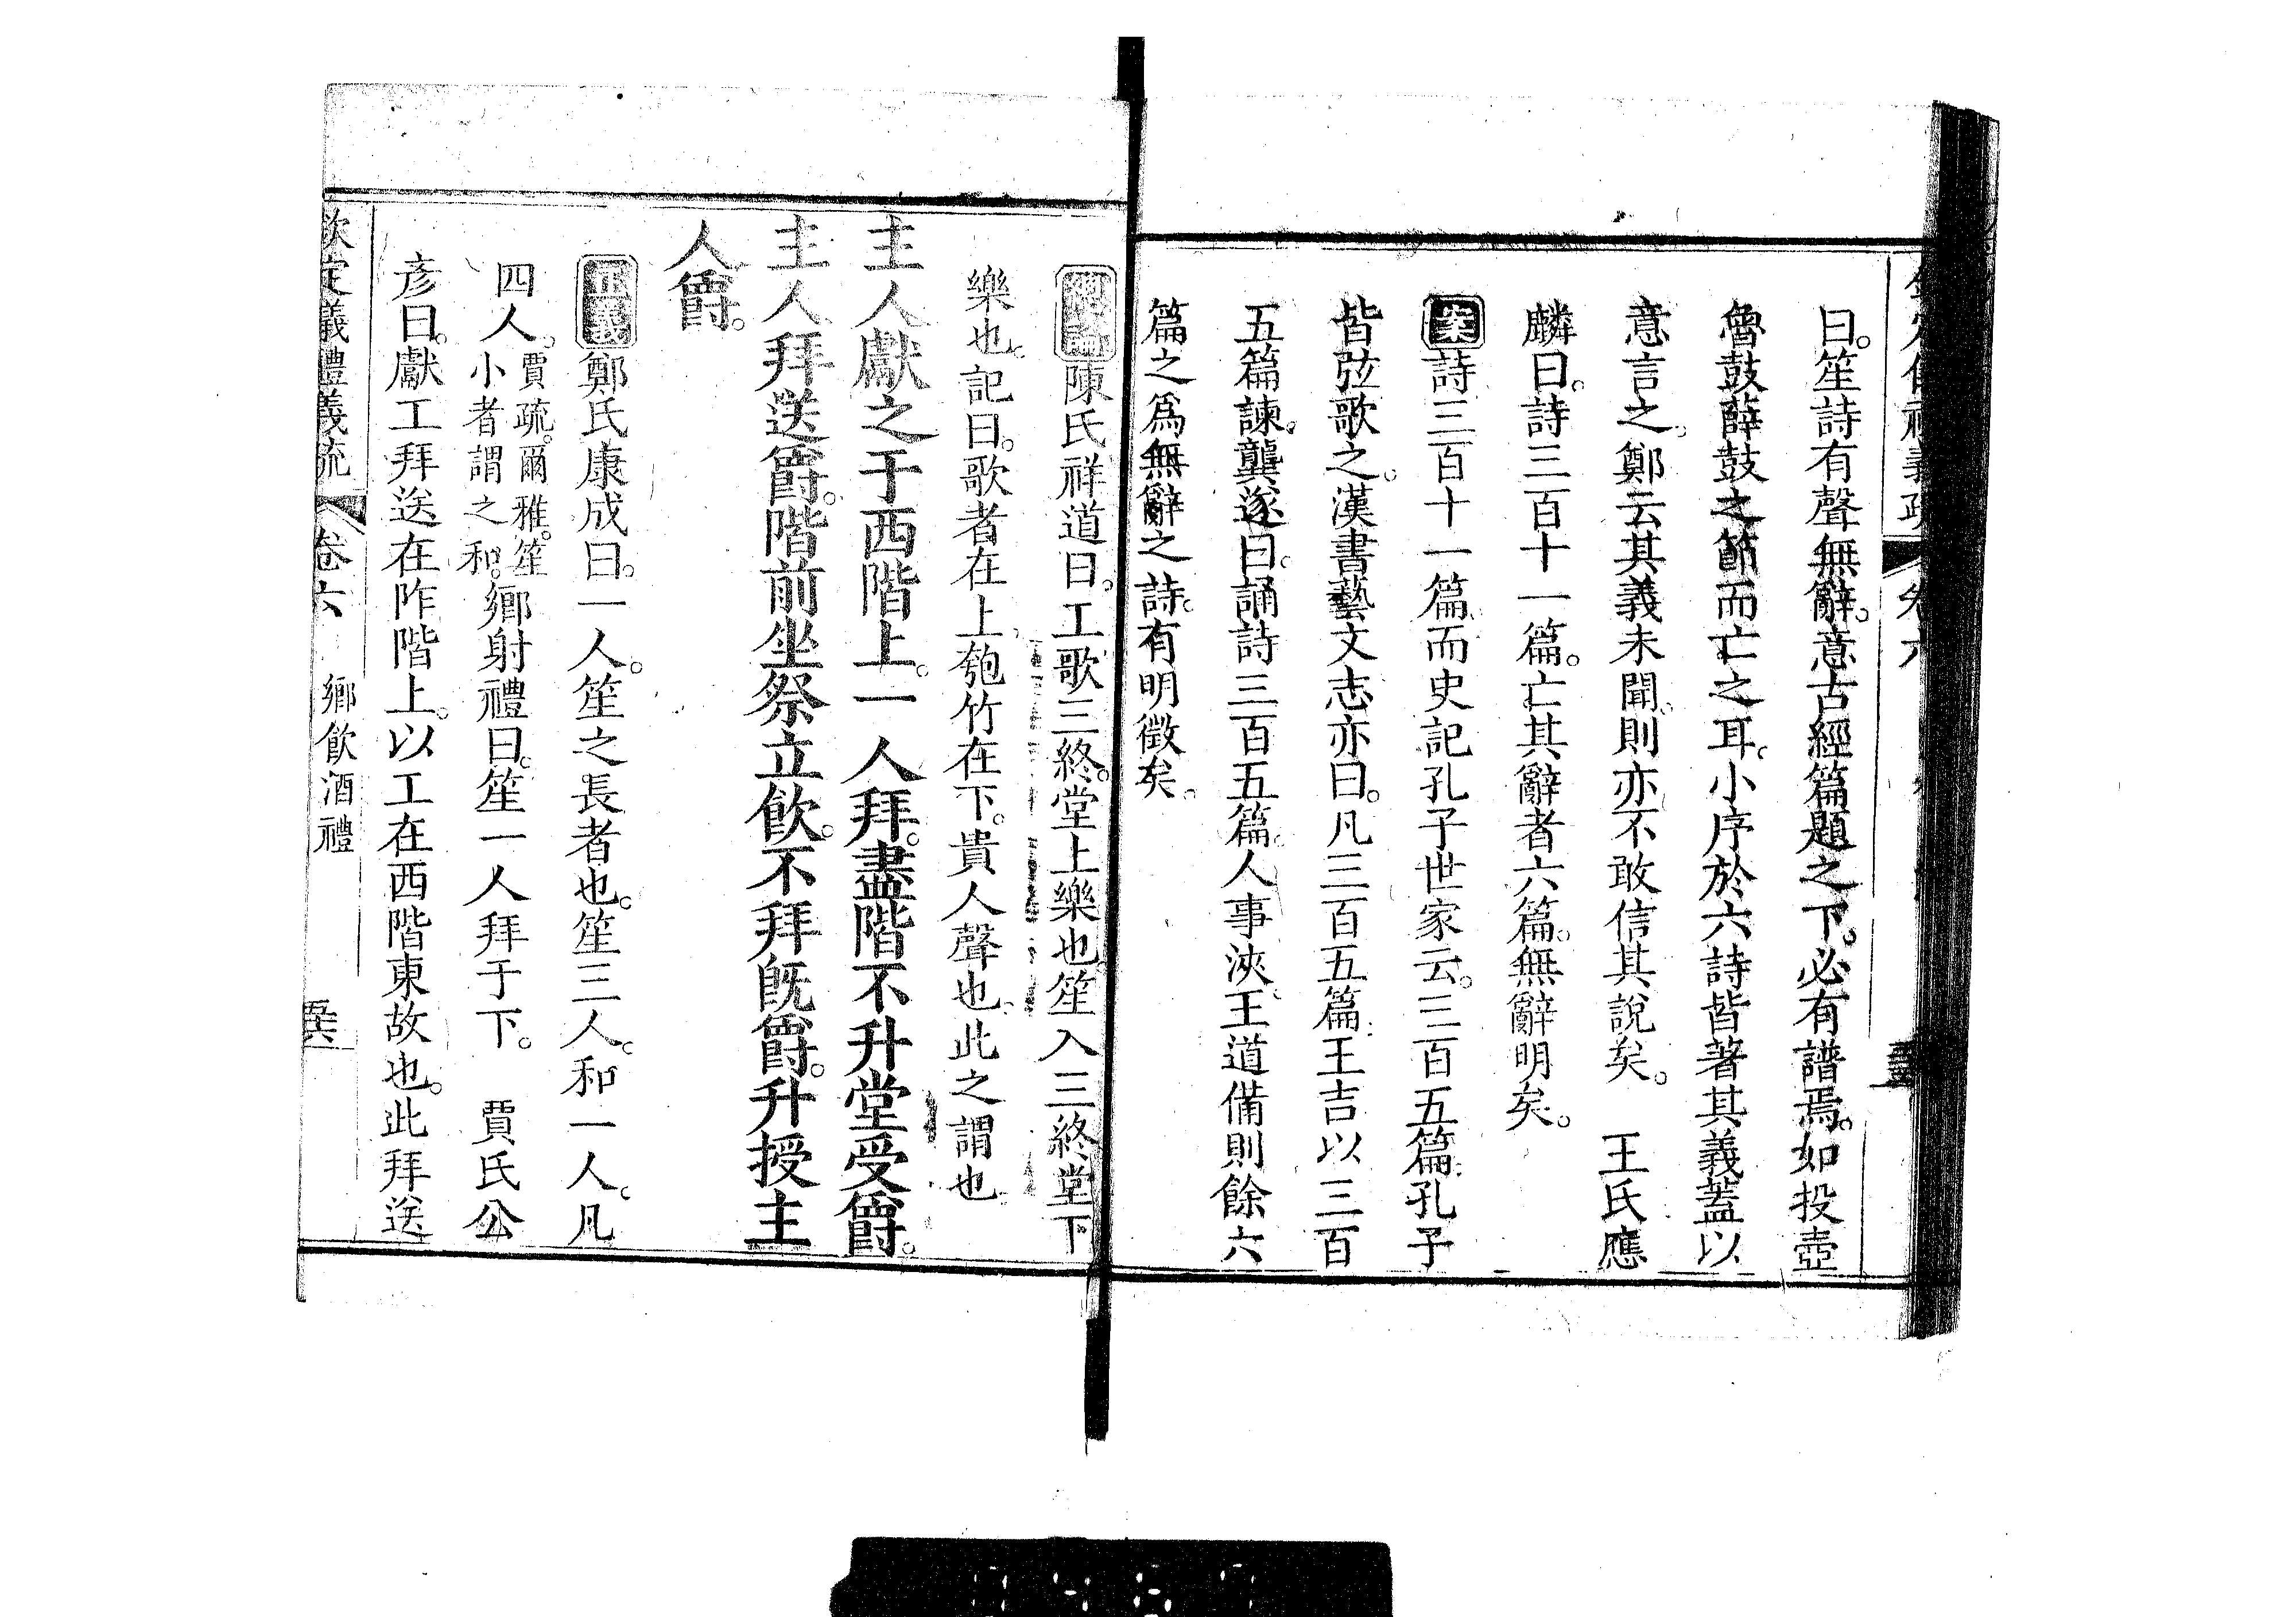 曰。笙詩有聲無辭。意古經篇題之下。必有譜焉。如投壺
魯鼓薛鼓之節而亡之耳。小序於六詩皆著其義蓋以
意言之。鄭云其義未聞。則亦不敢信其說矣。　王氏應
麟曰。詩三百十一篇。亡其辭者六篇。無辭明矣。
案詩三百十一篇而史記孔子世家云。三百五篇。孔子
皆弦歌之。漢書藝文志亦曰。凡三百五篇。王吉以三百
五篇諫。龔遂曰。誦詩三百五篇。人事浹。王道備則餘六
篇之爲無辭之詩。有明徵矣。
總論陳氏祥道曰。工歌三終。堂上樂也笙入三終堂下
樂也。記曰。歌者在上。匏竹在下。貴人聲也。此之謂也
主人獻之于西階上。一人拜。盡階不升堂受爵。
主人拜送爵。階前坐祭立飲。不拜既爵。升授主
人爵。
正義鄭氏康成曰。一人。笙之長者也。笙三人。和一人。凡
四人。賈疏。爾雅。笙小者謂之和。鄉射禮曰。笙一人拜于下。　賈氏公
彥曰。獻工拜送在阼階上。以工在西階東故也。此拜送
欽定儀禮義疏　卷六　鄉飲酒禮